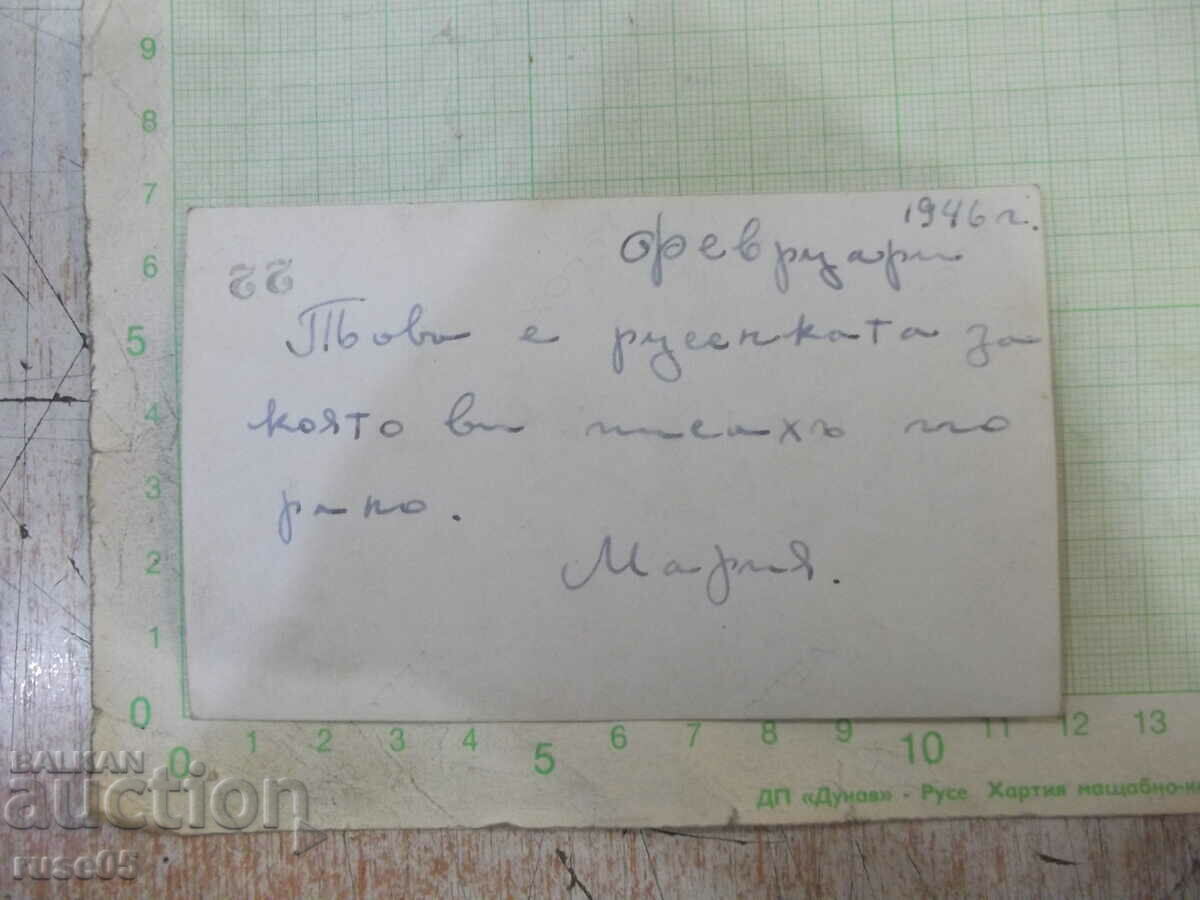 9
8
7
6
5
4
3
2
1
0
1946 г.
Февруари
22
Това е русенката за
която ви писахъ по
рано.
Мария.
0 1 2 3 4 5 6 7 8 9 10 11 12 13
ДП «Дунав» - Русе Хартия мащабно-
BALKAN
auction
ruse05